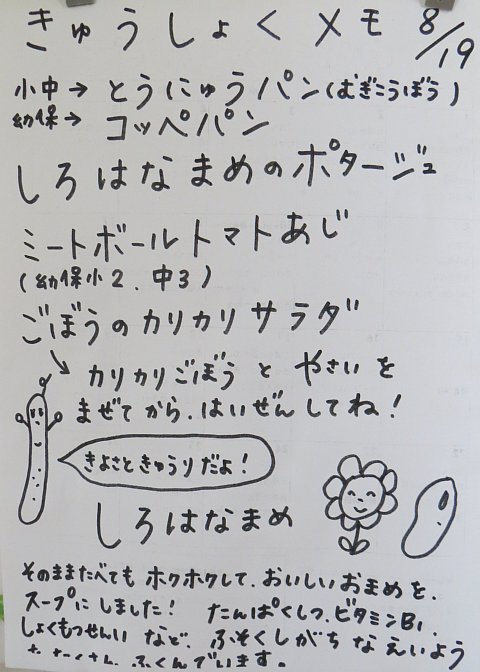 きゅうしょくメモ 8/19
小中→とうにゅうパン(むぎこうぼう)
幼保→コッペパン
しろはなまめのポタージュ
ミートボールトマトあじ
(幼保小2.中3)
ごぼうのカリカリサラダ
↘カリカリごぼうとやさいを
まぜてから、はいぜんしてね!
きよさときゅうりだよ!
しろはなまめ
そのままたべてもホクホクして、おいしいおまめを、
スープにしました! たんぱくしつ、ビタミンB1、
しょくもつせんい など、ふそくしがちなえいよう
ふくんでいます。